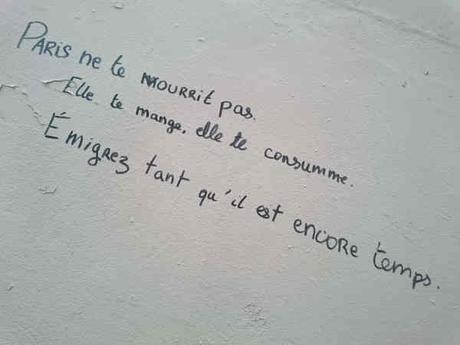 PARIS ne te NOURRit pas.
Elle te mange, elle te consumme.
Émigrez tant qu'il est encore temps.